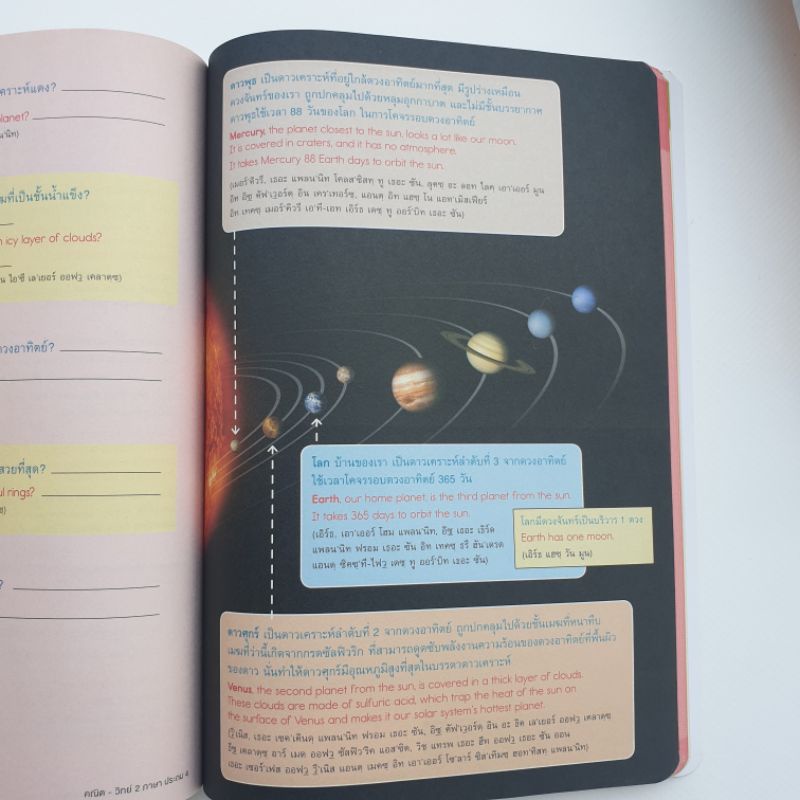 คราะห์แดง?
planet?
ฆที่เป็นชั้นน้ำแข็ง?
n icy layer of clouds?
น ไอ'ซี เล'เยอร์ ออฟว คลาดซ)
ดวงอาทิตย์?
สวยที่สุด?
ul rings?
?
คณิต - วิทย์ 2 ภาษา ประถม 4
ดาวพุธ เป็นดาวเคราะห์ที่อยู่ใกล้ดวงอาทิตย์มากที่สุด มีรูปร่างเหมือน
ดวงจันทร์ของเรา ถูกปกคลุมไปด้วยหลุมอุกกาบาต และไม่มีชั้นบรรยากาศ
ดาวพุธใช้เวลา 88 วันของโลก ในการโคจรรอบดวงอาทิตย์
Mercury, the planet closest to the sun, looks a lot like our moon.
It is covered in craters, and it has no atmosphere.
It takes Mercury 88 Earth days to orbit the sun.
(เมอร์'คิวรี, เธอะ แพลน'นิท โคลส'ซิสท ทู เธอะ ซัน, ลุคซ อะ ลอท ไลค เอา'เออร์ มูน
อิท อิซ คัฟ'เวอร์ด อิน เครา'เทอร์ซ, แอนด อิท แฮซ โน แอท'เมิสเฟียร์
อิท เทคซ เมอร์'คิวรี เอ'ที-เอท เอิร์ธ เดซ ทู ออร์'บิท เธอะ ซัน)
โลก บ้านของเรา เป็นดาวเคราะห์ลำดับที่ 3 จากดวงอาทิตย์
ใช้เวลาโคจรรอบดวงอาทิตย์ 365 วัน
Earth, our home planet, is the third planet from the sun.
It takes 365 days to orbit the sun.
(เอิร์ธ, เอา'เออร์ โฮม แพลน'นิท, อิซ เธอะ เธิร์ด
แพลน'นิท ฟรอม เธอะ ซัน อิท เทคซ ธรี ฮัน'เดรด
แอนด ซิคซ'ที-ไฟว เดซ ทู ออร์'บิท เธอะ ซัน)
โลกมีดวงจันทร์เป็นบริวาร 1 ดวง
Earth has one moon.
(เอิร์ธ แฮซ วัน มูน)
ดาวศุกร์ เป็นดาวเคราะห์ลำดับที่ 2 จากดวงอาทิตย์ ถูกปกคลุมไปด้วยชั้นเมฆที่หนาทึบ
เมฆที่ว่านี้เกิดจากกรดซัลฟิวริก ที่สามารถดูดซับพลังงานความร้อนของดวงอาทิตย์ที่พื้นผิว
ของดาว นั่นทำให้ดาวศุกร์มีอุณหภูมิสูงที่สุดในบรรดาดาวเคราะห์
Venus, the second planet from the sun, is covered in a thick layer of clouds.
These clouds are made of sulfuric acid, which trap the heat of the sun on
the surface of Venus and makes it our solar system's hottest planet.
(วี'นิส, เธอะ เซค'เคินด แพลน'นิท ฟรอม เธอะ ซัน, อิซ คัฟ'เวอร์ด อิน อะ ธิค เล'เยอร์ ออฟว คลาดซ
ธีซ คลาดซ อาร์ เมด ออฟว ซัลฟิว'ริค แอส'ซิด, วิช แทรพ เธอะ ฮีท ออฟว เธอะ ซัน ออน
เธอะ เซอร์'เฟส ออฟว วี'นิส แอนด เมคซ อิท เอา'เออร์ โซ'ลาร์ ซิส'เท็มซ ฮอท'ทิสท แพลน'นิท)